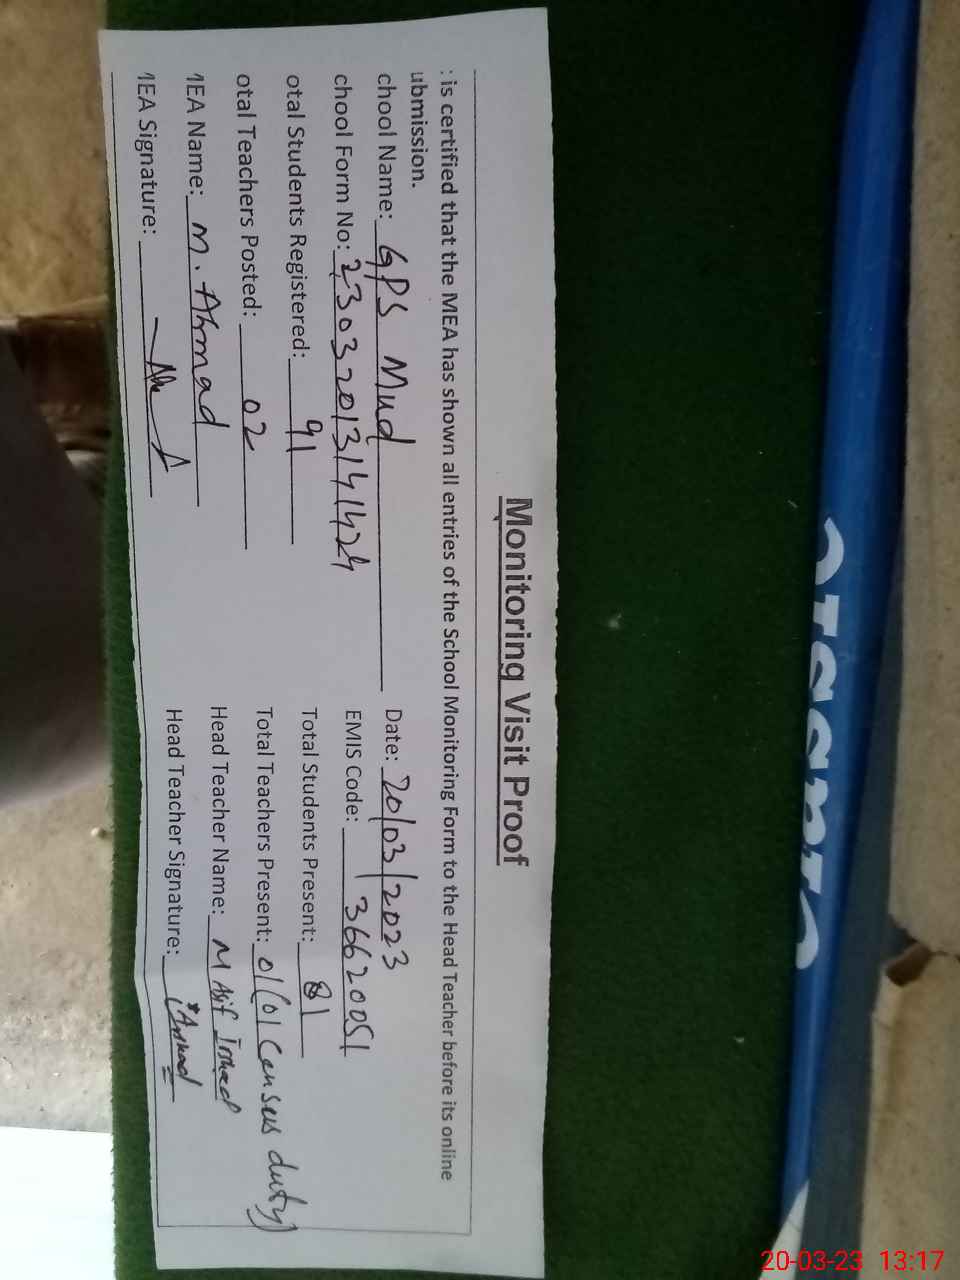 Monitoring Visit Proof
: is certified that the MEA has shown all entries of the School Monitoring Form to the Head Teacher before its online
ubmission.
chool Name: GPS Mud Date: 20/03/2023
chool Form No: 23032013141424 EMIS Code: 36620051
otal Students Registered: 91 Total Students Present: 81
otal Teachers Posted: 02 Total Teachers Present: 01(01 Census duty)
1EA Name: M. Ahmad Head Teacher Name: M Asif Irshad
1EA Signature: Head Teacher Signature:
20-03-23 13:17